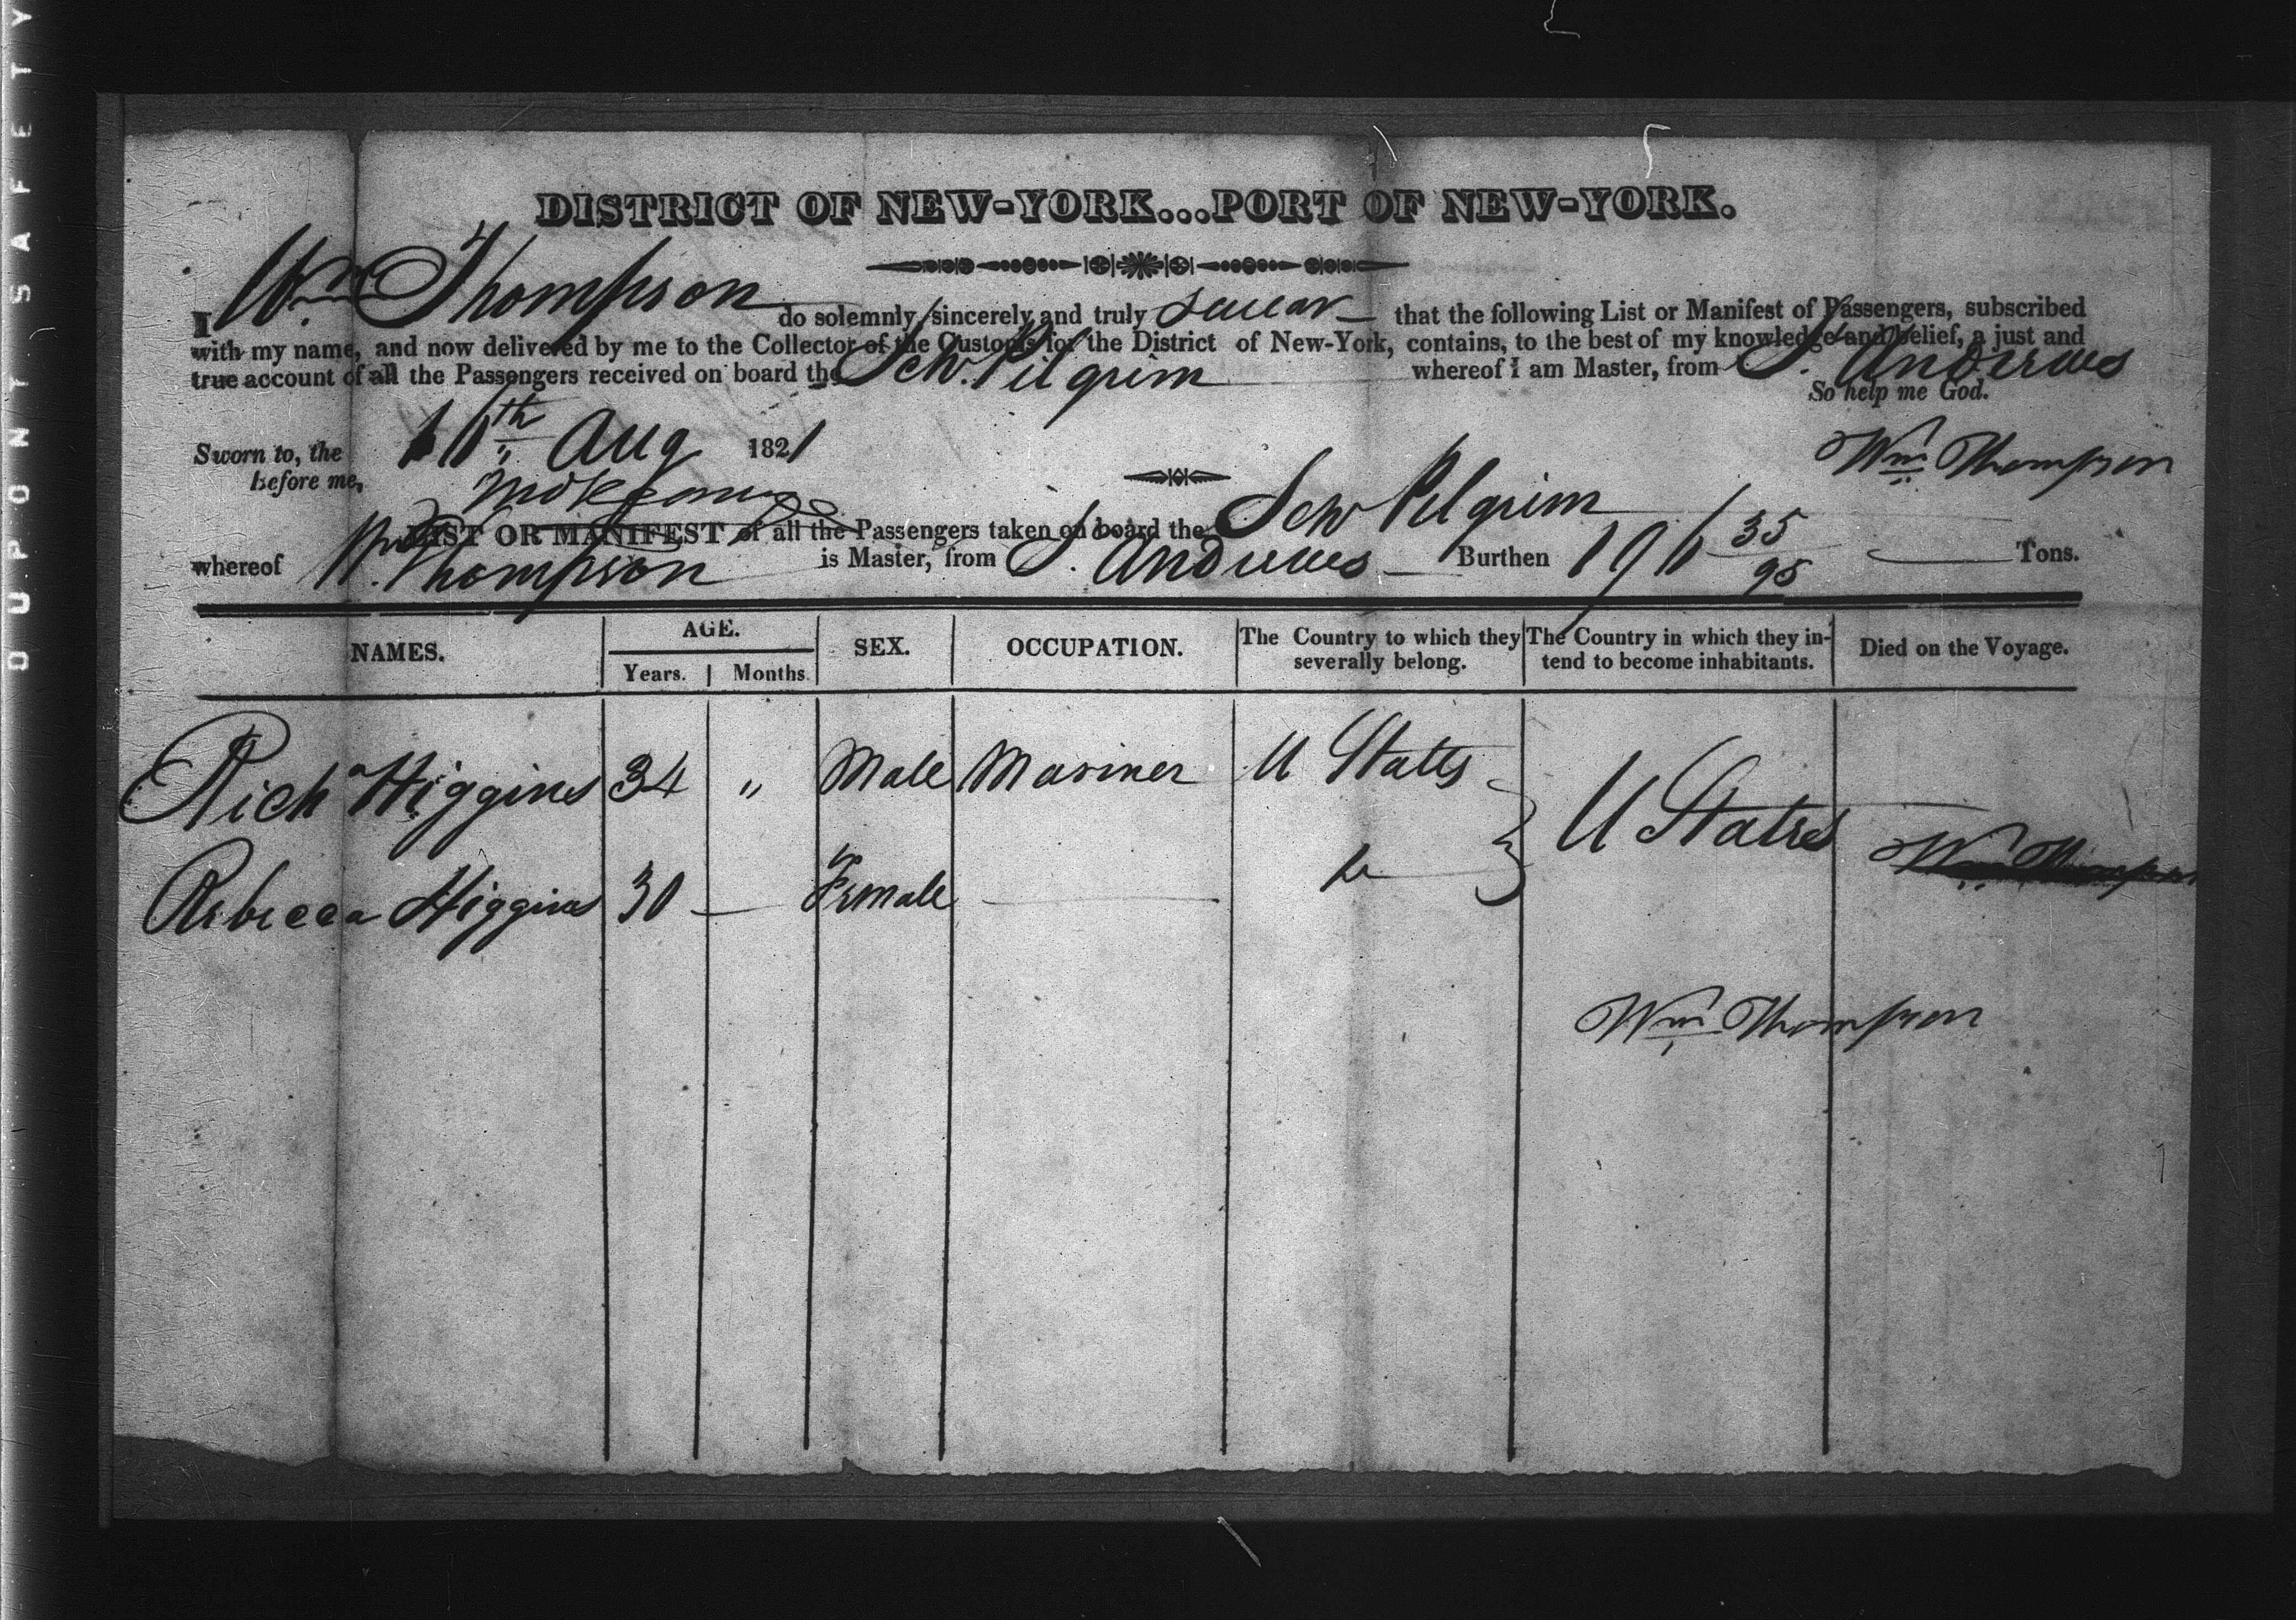 DUPONT SAFETY
DISTRICT OF NEW-YORK...PORT OF NEW-YORK.
I Wm. Thompson do solemnly, sincerely and truly swear that the following List or Manifest of Passengers, subscribed
with my name, and now delivered by me to the Collector of the Customs for the District of New-York, contains, to the best of my knowledge and belief, a just and
true account of all the Passengers received on board the Schr. Pilgrim whereof I am Master, from St. Andrews
So help me God.
Sworn to, the Aug 1821
before me,
Wm Thompson
LIST OR MANIFEST of all the Passengers taken on board the Schr Pilgrim
whereof Thompson is Master, from St. Andrews Burthen 196 35/95 Tons.
NAMES. AGE. Years. Months. SEX. OCCUPATION. The Country to which they severally belong. The Country in which they intend to become inhabitants. Died on the Voyage.
Richd Higgins 34 " Male Mariner U States
U States
Rebecca Higgins 30 — Female —
Wm Thompson
Wm Thompson